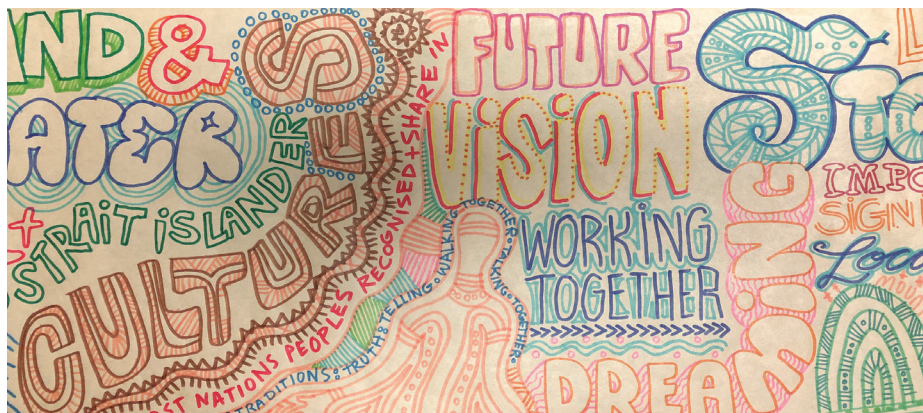 AND &
WATER
+
STRAIT ISLANDER
CULTURES
FIRST NATIONS PEOPLES RECOGNISED + SHARE IN
TRADITIONS: TRUTH & TELLING. WALKING TOGETHER. TALKING TOGETHER.
FUTURE
VISION
WORKING
TOGETHER
DREAMING
STO
IMPO
SIGN
Loc